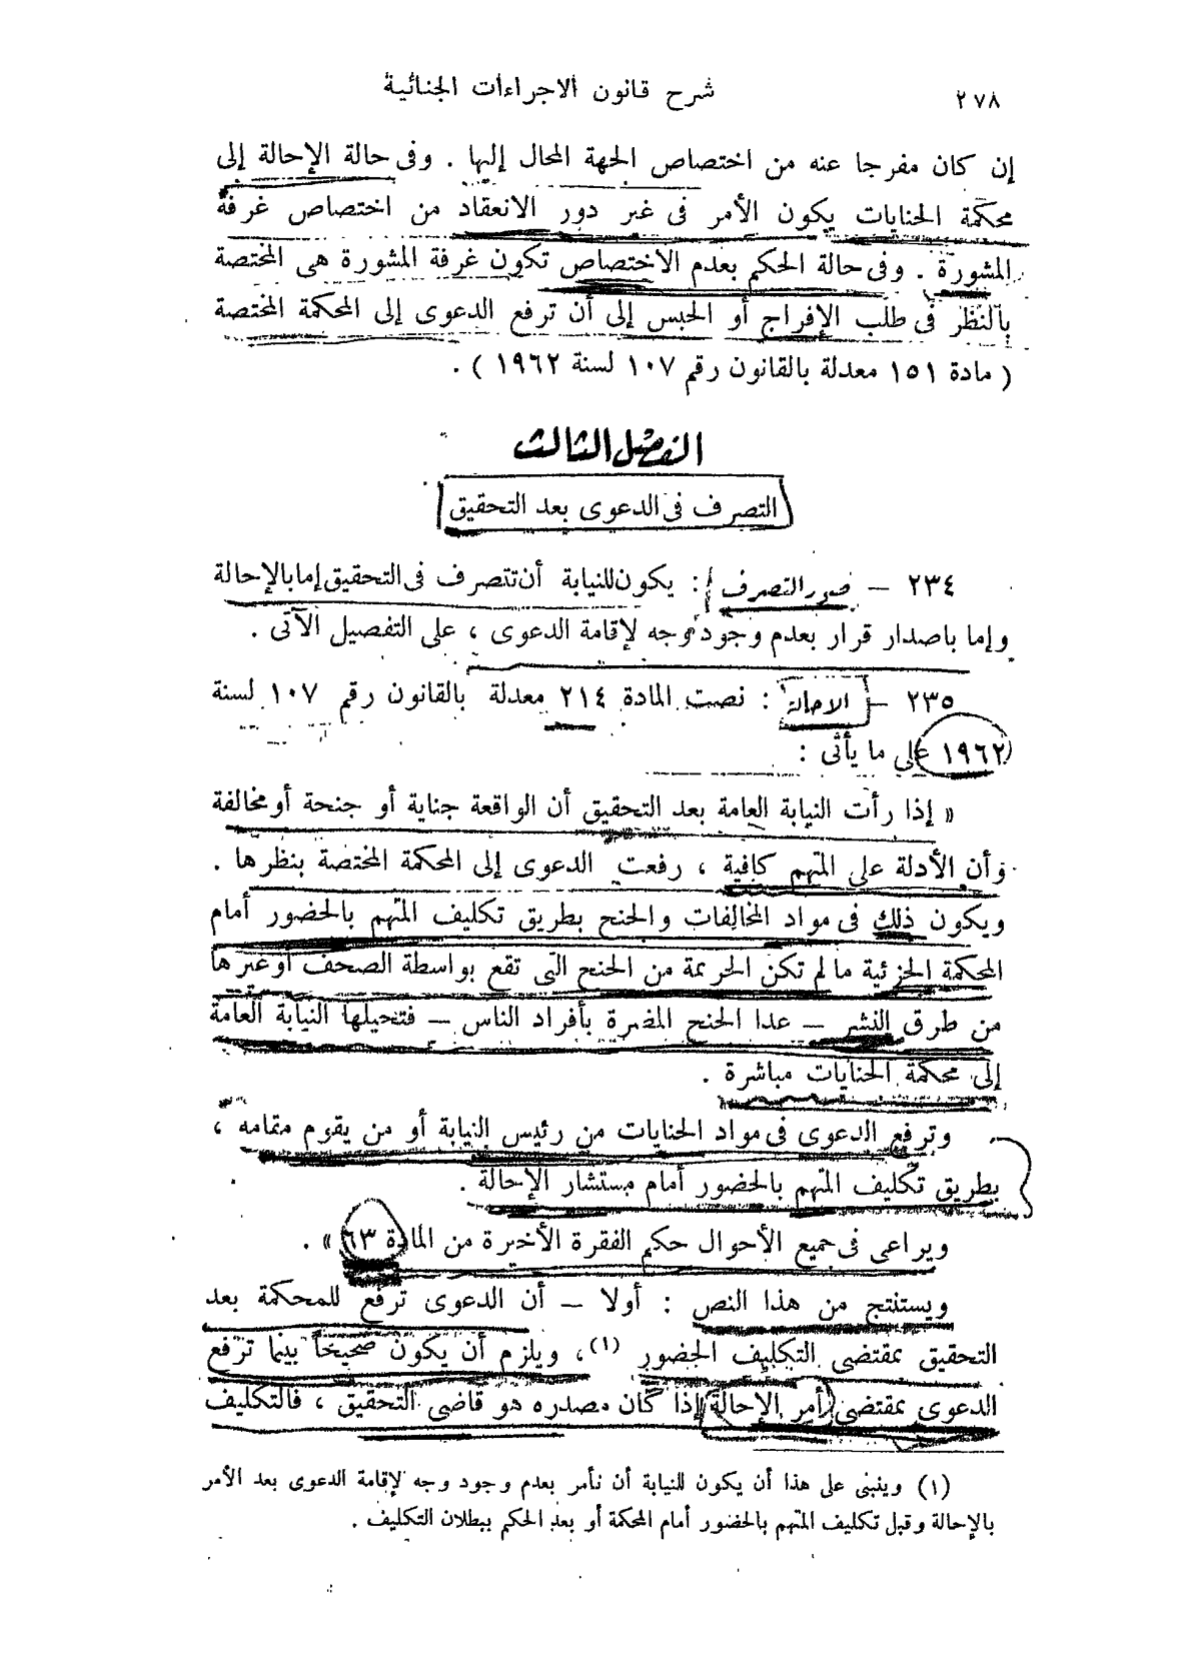 ٢٧٨
شرح قانون الاجراءات الجنائية
إن كان مفرجا عنه من اختصاص الجهة المحال إليها . وفى حالة الإحالة إلى
محكمة الجنايات يكون الأمر فى غير دور الانعقاد من اختصاص غرفة
المشورة . وفى حالة الحكم بعدم الاختصاص تكون غرفة المشورة هى المختصة
بالنظر فى طلب الإفراج أو الحبس إلى أن ترفع الدعوى إلى المحكمة المختصة
( مادة ١٥١ معدلة بالقانون رقم ١٠٧ لسنة ١٩٦٢ ) .
الفصل الثالث
التصرف فى الدعوى بعد التحقيق
٢٣٤ – صور التصرف : يكون للنيابة أن تتصرف فى التحقيق إما بالإحالة
وإما باصدار قرار بعدم وجود وجه لإقامة الدعوى ، على التفصيل الآتى .
٢٣٥ – الاحالة : نصت المادة ٢١٤ معدلة بالقانون رقم ١٠٧ لسنة
١٩٦٢ على ما يأتى :
« إذا رأت النيابة العامة بعد التحقيق أن الواقعة جناية أو جنحة أو مخالفة
وأن الأدلة على المتهم كافية ، رفعت الدعوى إلى المحكمة المختصة بنظرها .
ويكون ذلك فى مواد المخالفات والجنح بطريق تكليف المتهم بالحضور أمام
المحكمة الجزئية ما لم تكن الجريمة من الجنح التى تقع بواسطة الصحف أو غيرها
من طرق النشر – عدا الجنح المضرة بأفراد الناس – فتحيلها النيابة العامة
إلى محكمة الجنايات مباشرة .
وترفع الدعوى فى مواد الجنايات من رئيس النيابة أو من يقوم مقامه ،
بطريق تكليف المتهم بالحضور أمام مستشار الإحالة .
ويراعى فى جميع الأحوال حكم الفقرة الأخيرة من المادة ٦٣ » .
ويستنتج من هذا النص : أولا – أن الدعوى ترفع للمحكمة بعد
التحقيق بمقتضى التكليف الحضور (١) ، ويلزم أن يكون صحيحاً بينما ترفع
الدعوى بمقتضى أمر الإحالة إذا كان مصدره هو قاضى التحقيق ، فالتكليف
(١) وينبنى على هذا أن يكون للنيابة أن تأمر بعدم وجود وجه لإقامة الدعوى بعد الأمر
بالإحالة وقبل تكليف المتهم بالحضور أمام المحكمة أو بعد الحكم ببطلان التكليف .